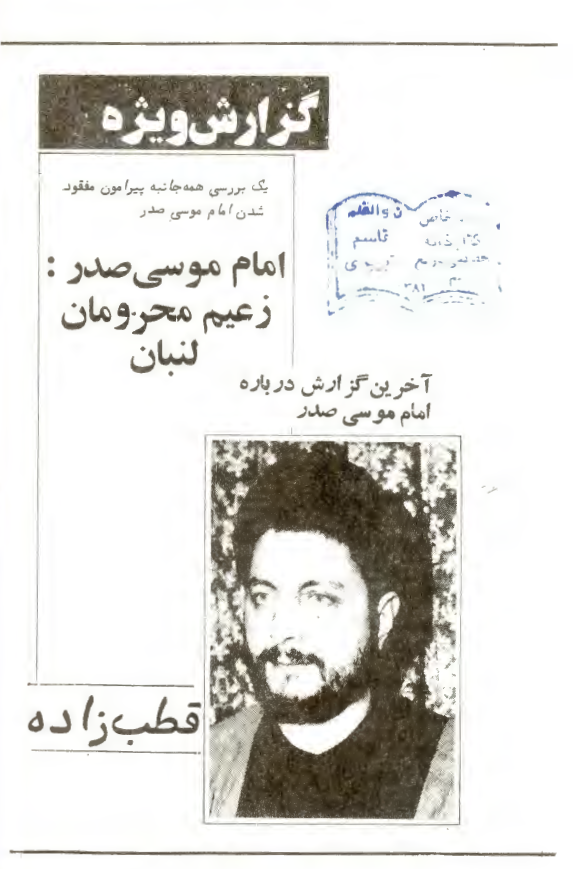 گزارش ویژه
یک بررسی همه‌جانبه پیرامون مفقود
شدن امام موسی صدر
امام موسی صدر :
زعیم محرومان
لنبان
آخرین گزارش درباره
امام موسی صدر
قطب‌زاده
خاص ن والقلم
قاسم